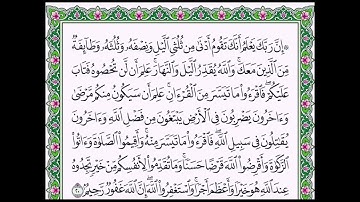 ۞إِنَّ رَبَّكَ يَعْلَمُ أَنَّكَ تَقُومُ أَدْنَىٰ مِن ثُلُثَيِ ٱلَّيْلِ وَنِصْفَهُۥ وَثُلُثَهُۥ وَطَآئِفَةٌ
مِّنَ ٱلَّذِينَ مَعَكَۚ وَٱللَّهُ يُقَدِّرُ ٱلَّيْلَ وَٱلنَّهَارَۚ عَلِمَ أَن لَّن تُحْصُوهُ فَتَابَ
عَلَيْكُمْۖ فَٱقْرَءُوا۟ مَا تَيَسَّرَ مِنَ ٱلْقُرْءَانِۚ عَلِمَ أَن سَيَكُونُ مِنكُم مَّرْضَىٰ
وَءَاخَرُونَ يَضْرِبُونَ فِى ٱلْأَرْضِ يَبْتَغُونَ مِن فَضْلِ ٱللَّهِ وَءَاخَرُونَ
يُقَٰتِلُونَ فِى سَبِيلِ ٱللَّهِۖ فَٱقْرَءُوا۟ مَا تَيَسَّرَ مِنْهُۚ وَأَقِيمُوا۟ ٱلصَّلَوٰةَ وَءَاتُوا۟
ٱلزَّكَوٰةَ وَأَقْرِضُوا۟ ٱللَّهَ قَرْضًا حَسَنًاۚ وَمَا تُقَدِّمُوا۟ لِأَنفُسِكُم مِّنْ خَيْرٍ تَجِدُوهُ
عِندَ ٱللَّهِ هُوَ خَيْرًا وَأَعْظَمَ أَجْرًاۚ وَٱسْتَغْفِرُوا۟ ٱللَّهَۖ إِنَّ ٱللَّهَ غَفُورٌ رَّحِيمٌۢ ٢٠